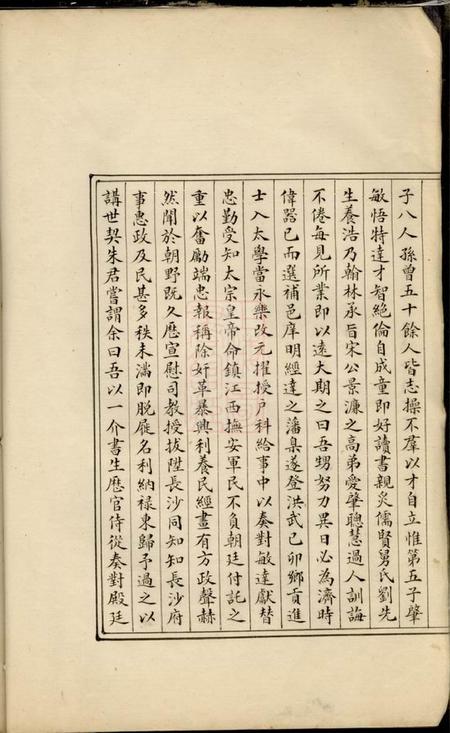 子八人孫曾五十餘人皆志操不羣以才自立惟第五子肇
敏悟特達才智絶倫自成童即好讀書親炙儒賢舅氏劉先
生養浩乃翰林承旨宋公景濂之高弟愛肇聰慧過人訓誨
不倦每見所業即以遠大期之曰吾甥努力異日必為濟時
偉器已而選補邑庠明經達之藩臬遂登洪武己卯鄉貢進
士入太學當永樂改元擢授戶科給事中以奏對敏達獻替
忠勤受知太宗皇帝命鎮江西撫安軍民不負朝廷付託之
重以奮勵端忠報稱除奸革暴興利養民經畫有方政聲赫
然聞於朝野既久歷宣慰司教授拔陞長沙同知知長沙府
事惠政及民甚多秩未滿即脫屣名利納祿東歸予過之以
講世契朱君嘗謂余曰吾以一介書生歷官侍從奏對殿廷